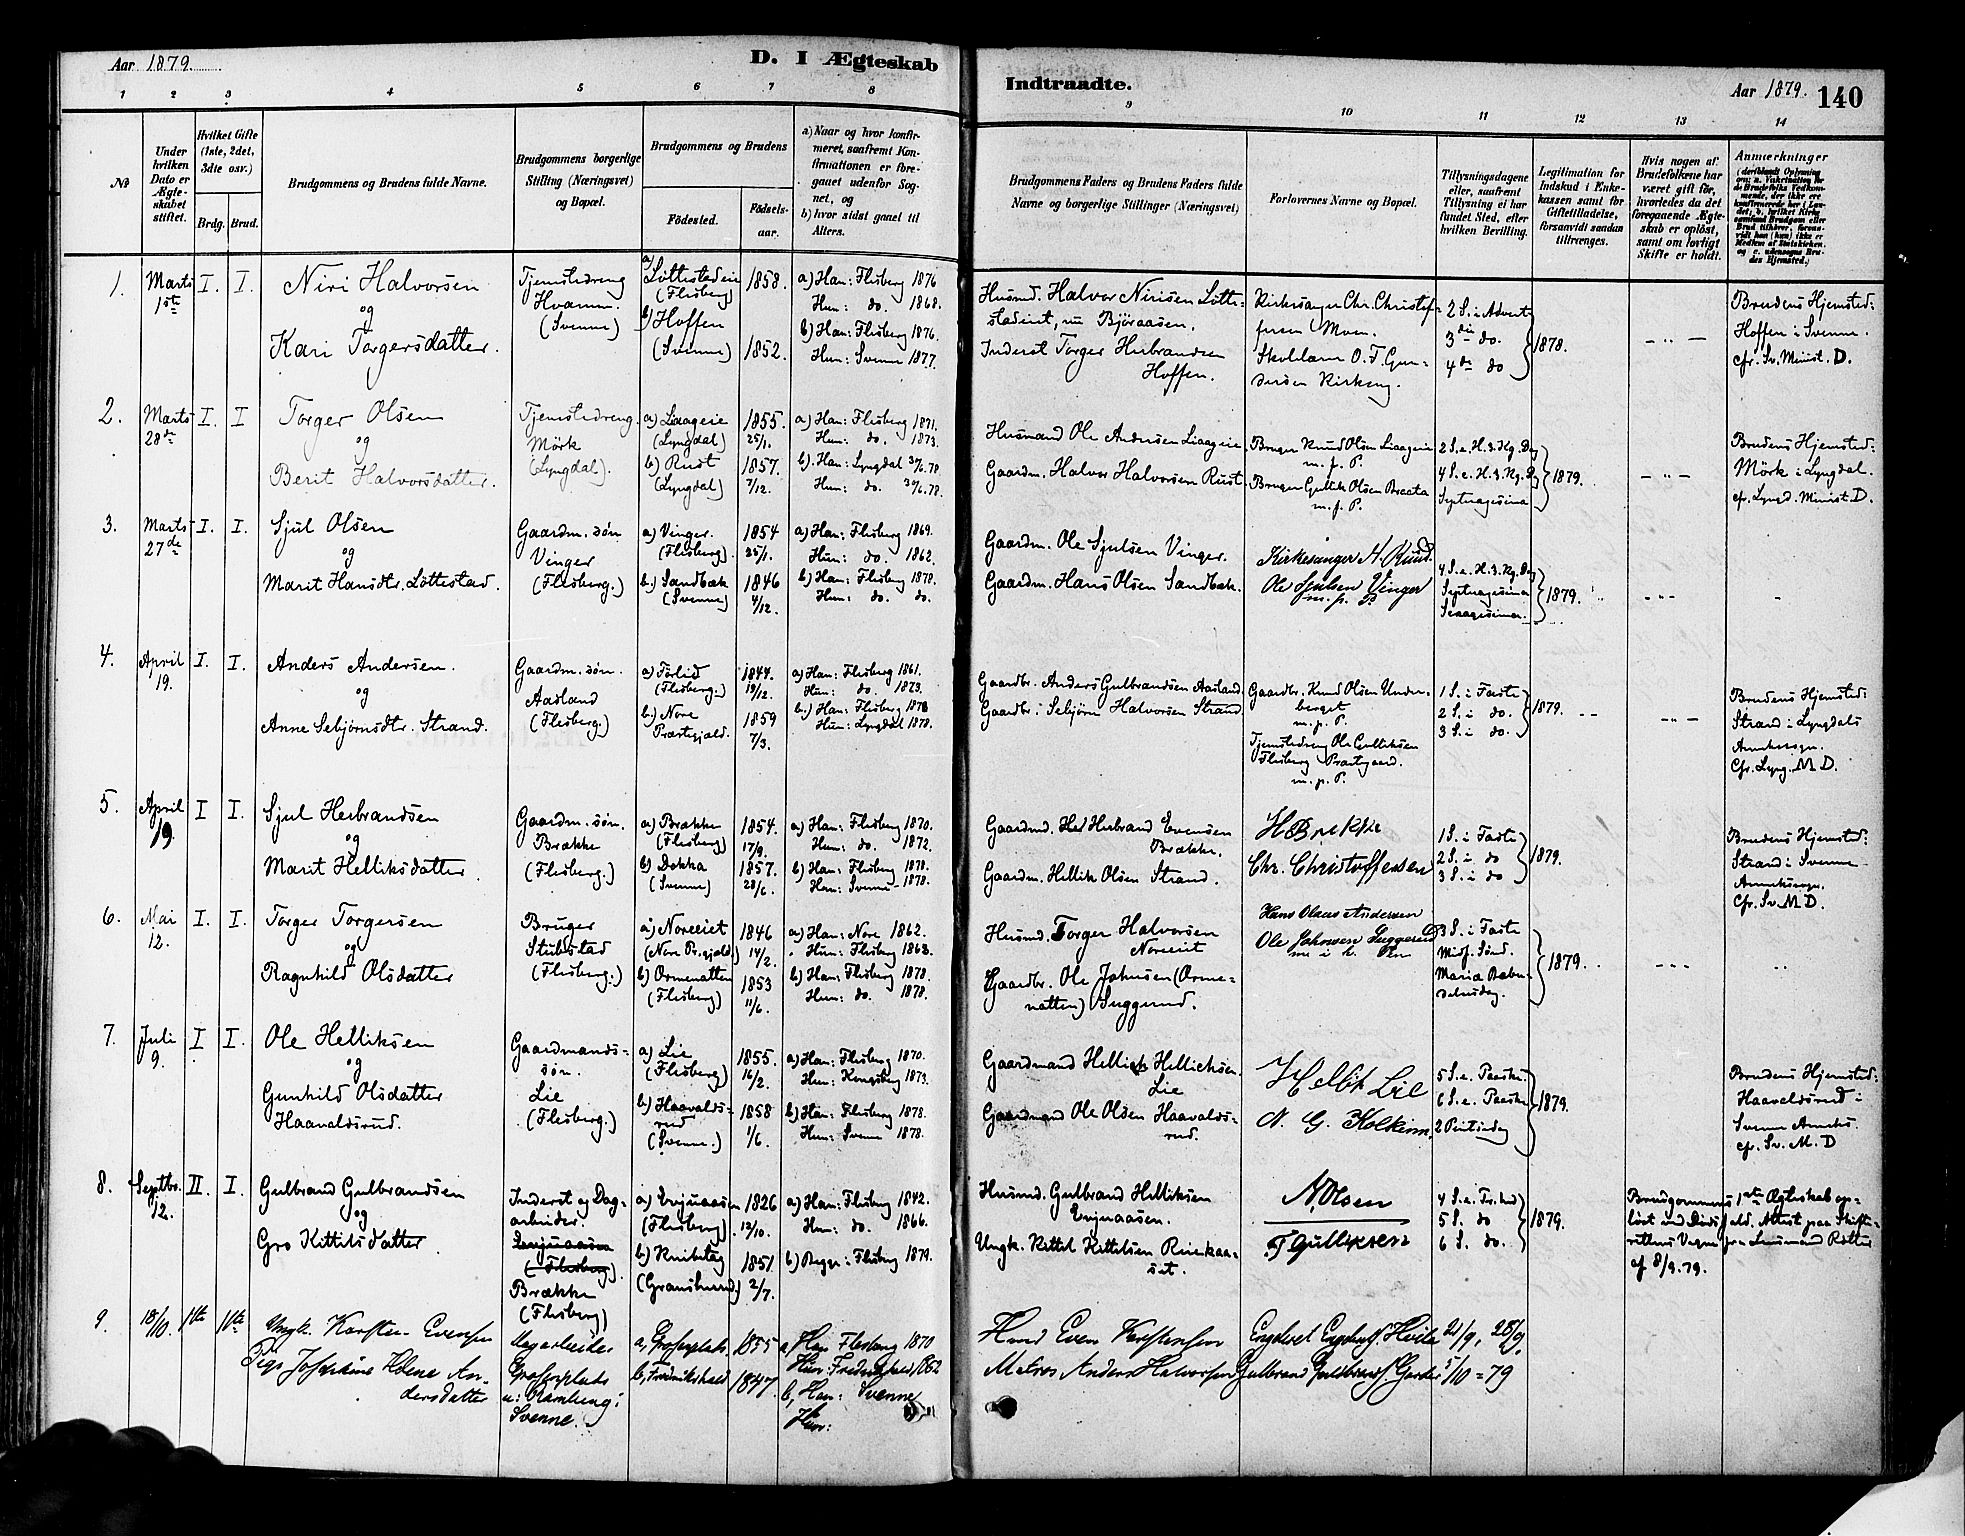 Aar 1879.
D. I Ægteskab
Indtraadte.
Aar 1879.
140
1 2 3 4 5 6 7 8 9 10 11 12 13 14
No
Under hvilken Dato er Ægteskabet stiftet.
Hvilket Gifte (1ste, 2det, 3die osv.)
Brdg. Brud.
Brudgommens og Brudens fulde Navne.
Brudgommens borgerlige Stilling (Næringsvei) og Bopæl.
Brudgommens og Brudens
Fødested.
Fødselsaar.
a) Naar og hvor konfirmeret, saafremt Konfirmationen er foregaaet udenfor Sognet, og
b) hvor sidst gaaet til Alters.
Brudgommens Faders og Brudens Faders fulde Navne og borgerlige Stillinger (Næringsvei)
Forlovernes Navne og Bopæl.
Tillysningsdagene eller, saafremt Tillysning ei har fundet Sted, efter hvilken Bevilling.
Legitimation for Indskud i Enkekassen samt for Giftetilladelse, forsaavidt saadan tiltrænges.
Hvis nogen af Brudefolkene har været gift før, hvorledes da det foregaaende Ægteskab er opløst, samt om lovligt Skifte er holdt.
Anmærkninger
1. Marts 1ste I. I.
Niri Halvorsen
og
Kari Torgersdatter.
Tjenstedreng
Hvamm.
(Svenne)
a) Löttestadeie
(Flesberg) 1858.
b) Hoffen
(Svenne) 1852.
a) Han: Flesberg 1876
Hun: do 1868.
b) Han: Flesberg 1876.
Hun: Svenne 1877.
Husmd. Halvor Nirisen Lötte-
stadeiet, nu Björaasen.
Inderst Torger Herbrandsen
Hoffen.
Kirkesanger Chr. Christof-
fersen Moen.
Skolelærer O. T. Gun-
dersen Kirkeng.
2 S. i Advent
3die do.
4de do
1878.
Brudens Hjemsted:
Hoffen i Svenne.
cfr. Sv. Minist. D.
2. Marts 28de I. I
Torger Olsen
og
Berit Halvorsdatter.
Tjenstedreng.
Mörk
(Lyngdal).
a) Liaageie 1855.
(Lyngdal) 25/1.
b) Rust 1857.
(Lyngdal) 7/12.
a) Han: Flesberg 1871.
Hun: do. 1873.
b). Han: Lyngdal 30/6.78.
Hun: do. 30/6.78.
Husmand Ole Andersen Liaageie
Gaardm. Halvor Halvorsen Rust
Bruger Knud Olsen Liaageie
m. p. P.
Bruger Gullik Olsen Braata
m. p. P.
2 S. e. H. 3. Kg. Dag
4 S. e. H. 3. Kg. D.
Septuagesima
1879.
Brudens Hjemsted:
Mörk i Lyngdal.
cf. Lyngd. Minist. D.
3. Marts 27de I. I.
Sjul Olsen
og
Marit Hansdtr. Löttestad.
Gaardm. sön
Vinger
(Flesberg.)
a) Vinger. 1854
(Flesberg). 25/1.
b.) Sandbæk 1846
(Svenne) 4/12.
a) Han: Flesberg 1869.
Hun: do. 1862.
b) Han: Flesberg 1878.
Hun: do. do.
Gaardm. Ole Sjulsen Vinger.
Gaardm. Hans Olsen Sandbæk.
Kirkesanger N. Ruud.
Ole Sjulsen Vinger
m. p. P.
4 S. e. H. 3. Kg. Dag
Septuagesima
Sexagesima.
1879.
4. April 19. I. I.
Anders Andersen.
og
Anne Sebjørnsdtr. Strand.
Gaardm. sön.
Aasland
(Flesberg.)
a) Förlid 1844.
(Flesberg.) 19/12.
b.) Nore 1859
Præstegjæld. 7/3.
a) Han: Flesberg 1861.
Hun: do. 1873.
b.) Han: Flesberg 1878
Hun: Lyngdal 1878.
Gaardbr. Anders Gulbrandsen Aasland.
Gaardbr. Sebjörn Halvorsen Strand
Gaardbr. Knud Olsen Under-
berget
m. p. P.
Tjenstedreng Ole Gulliksen
Flesberg Præstgaard.
m. p. P.
1 S. i Faste
2 S. i do.
3 S. i do.
1879.
Brudens Hjemsted:
Strand i Lyngdals
Annexsogn.
Cfr. Lyng. M D.
5. April 19. I I.
Sjul Herbrandsen
og
Marit Helliksdatter.
Gaardm. sön.
Brække
(Flesberg.)
a) Brække 1854.
(Flesberg) 17/9.
b) Dokka 1857.
(Svenne) 28/6.
a) Han: Flesberg 1870.
Hun: do. 1872.
b) Han: Flesberg 1878.
Hun: Svenne 1878.
Gaardmd. Herbrand Evensen
Brække.
Gaardm. Hellik Olsen Strand.
H Brekke
Chr. Christoffersen
1 S. i Faste
2 S. i do
3 S. i do
1879.
Brudens Hjemsted:
Strand i Svenne
Annexsogn.
Cfr. Sv. M D.
6. Mai 12. I. I.
Torger Torgersen
og
Ragnhild Olsdatter
Bruger
Stubstad
(Flesberg.)
a) Noreeiet 1846
(Nore Pr.gjæld.) 14/2.
b) Ormenatten 1853
(Flesberg) 11/6.
a) Han: Nore 1862.
Hun: Flesberg 1868.
b) Han: Flesberg 1878.
Hun: do. 1878.
Husmd. Torger Halvorsen
Noreeiet
Gaardbr. Ole Johnsen (Orme-
natten) Suggerud.
Hans Olaus Andersen
Ole Johnsen Suggerud
3 S. i Faste
Midf. Sönd.
Mariæ Bebu-
delsesdag.
1879.
7. Juli 9. I I.
Ole Helliksen
og
Gunhild Olsdatter
Haavaldsrud.
Gaardmands-
sön.
Lie
(Flesberg.)
a) Lie 1855.
(Flesberg) 16/2.
b) Haavalds-
rud 1858
(Svenne.) 1/6.
a) Han: Flesberg 1870.
Hun: Kongsberg 1873.
b) Han: Flesberg 1878.
Hun: Svenne 1878.
Gaardmand Hellich Hellichsen
Lie
Gaardmand Ole Olsen Haavalds-
rud.
Hellik Lie
N. G. Kolkinn.
5 S. e. Paaske
6 S. e. Paaske
2 Pintsedag
1879.
Brudens Hjemsted:
Haavaldsrud i
Svenne Annexs.
cfr. Sv. M. D
8. Septbr. 12. II. I.
Gulbrand Gulbrandsen
og
Gro Kittilsdatter.
Inderst og Dag-
arbeider.
Evjuaasen
(Flesberg).
Brække
(Flesberg)
a) Evjuaasen 1826
(Flesberg) 12/10.
b) Knibetag 1851.
(Gransherred.) 2/7.
a) Han: Flesberg 1842.
Hun: do. 1866.
b) Begge: Flesberg 1879.
Husmd. Gulbrand Helliksen
Evjuaasen.
Ungk. Kittil Kittilsen
N. Olsen
T Gulliksen
4 S. e. Tr.
5 S. do
6 S. do.
1879.
Brudgommens 1ste Ægteskab op-
löst ved Dødsfald. Attest paa Skifte-
rettens Vegne fra Lensmand Rotter
af 8/9.79.
9. 18/10. 1ste 1ste
Ungk. Karsten Evensen
Pige Josephine Helene An-
dersdatter
Dagarbeider
i Svenne.
a, 1855
b, Fredrikshald 1847.
a, Han Flesberg 1870
Hun: Fredrikshald 1862
b, Han: Svenne
Hun:
Husmd Even Karstensen
Matros Anders Halvorsen
21/9, 28/9,
5/10 = 79